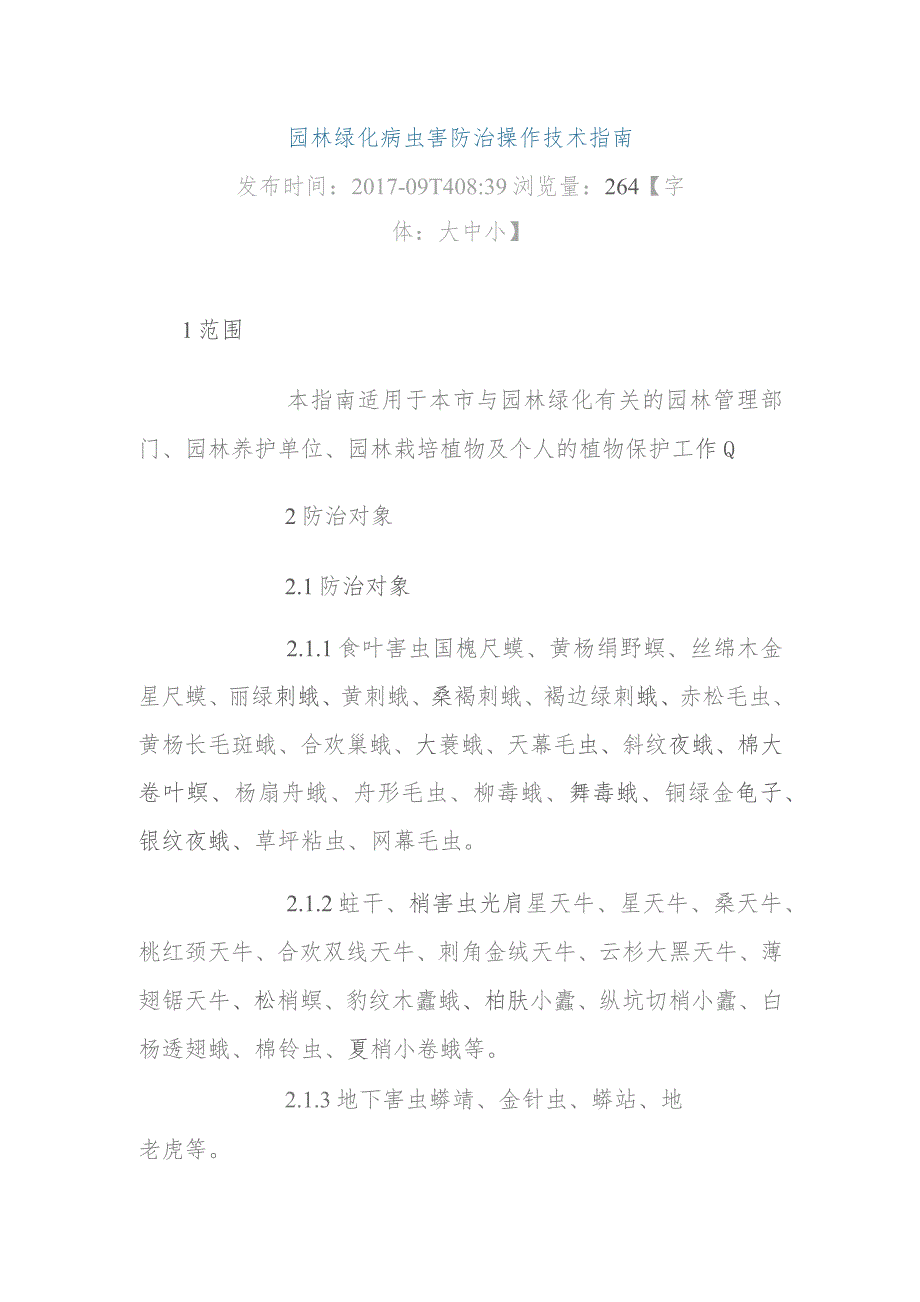 园林绿化病虫害防治操作技术指南
发布时间：2017-09T408:39浏览量：264【字
体：大中小】
1范围
本指南适用于本市与园林绿化有关的园林管理部
门、园林养护单位、园林栽培植物及个人的植物保护工作Q
2防治对象
2.1防治对象
2.1.1食叶害虫国槐尺蠖、黄杨绢野螟、丝绵木金
星尺蠖、丽绿刺蛾、黄刺蛾、桑褐刺蛾、褐边绿刺蛾、赤松毛虫、
黄杨长毛斑蛾、合欢巢蛾、大蓑蛾、天幕毛虫、斜纹夜蛾、棉大
卷叶螟、杨扇舟蛾、舟形毛虫、柳毒蛾、舞毒蛾、铜绿金龟子、
银纹夜蛾、草坪粘虫、网幕毛虫。
2.1.2蛀干、梢害虫光肩星天牛、星天牛、桑天牛、
桃红颈天牛、合欢双线天牛、刺角金绒天牛、云杉大黑天牛、薄
翅锯天牛、松梢螟、豹纹木蠹蛾、柏肤小蠹、纵坑切梢小蠹、白
杨透翅蛾、棉铃虫、夏梢小卷蛾等。
2.1.3地下害虫蟒靖、金针虫、蟒站、地
老虎等。